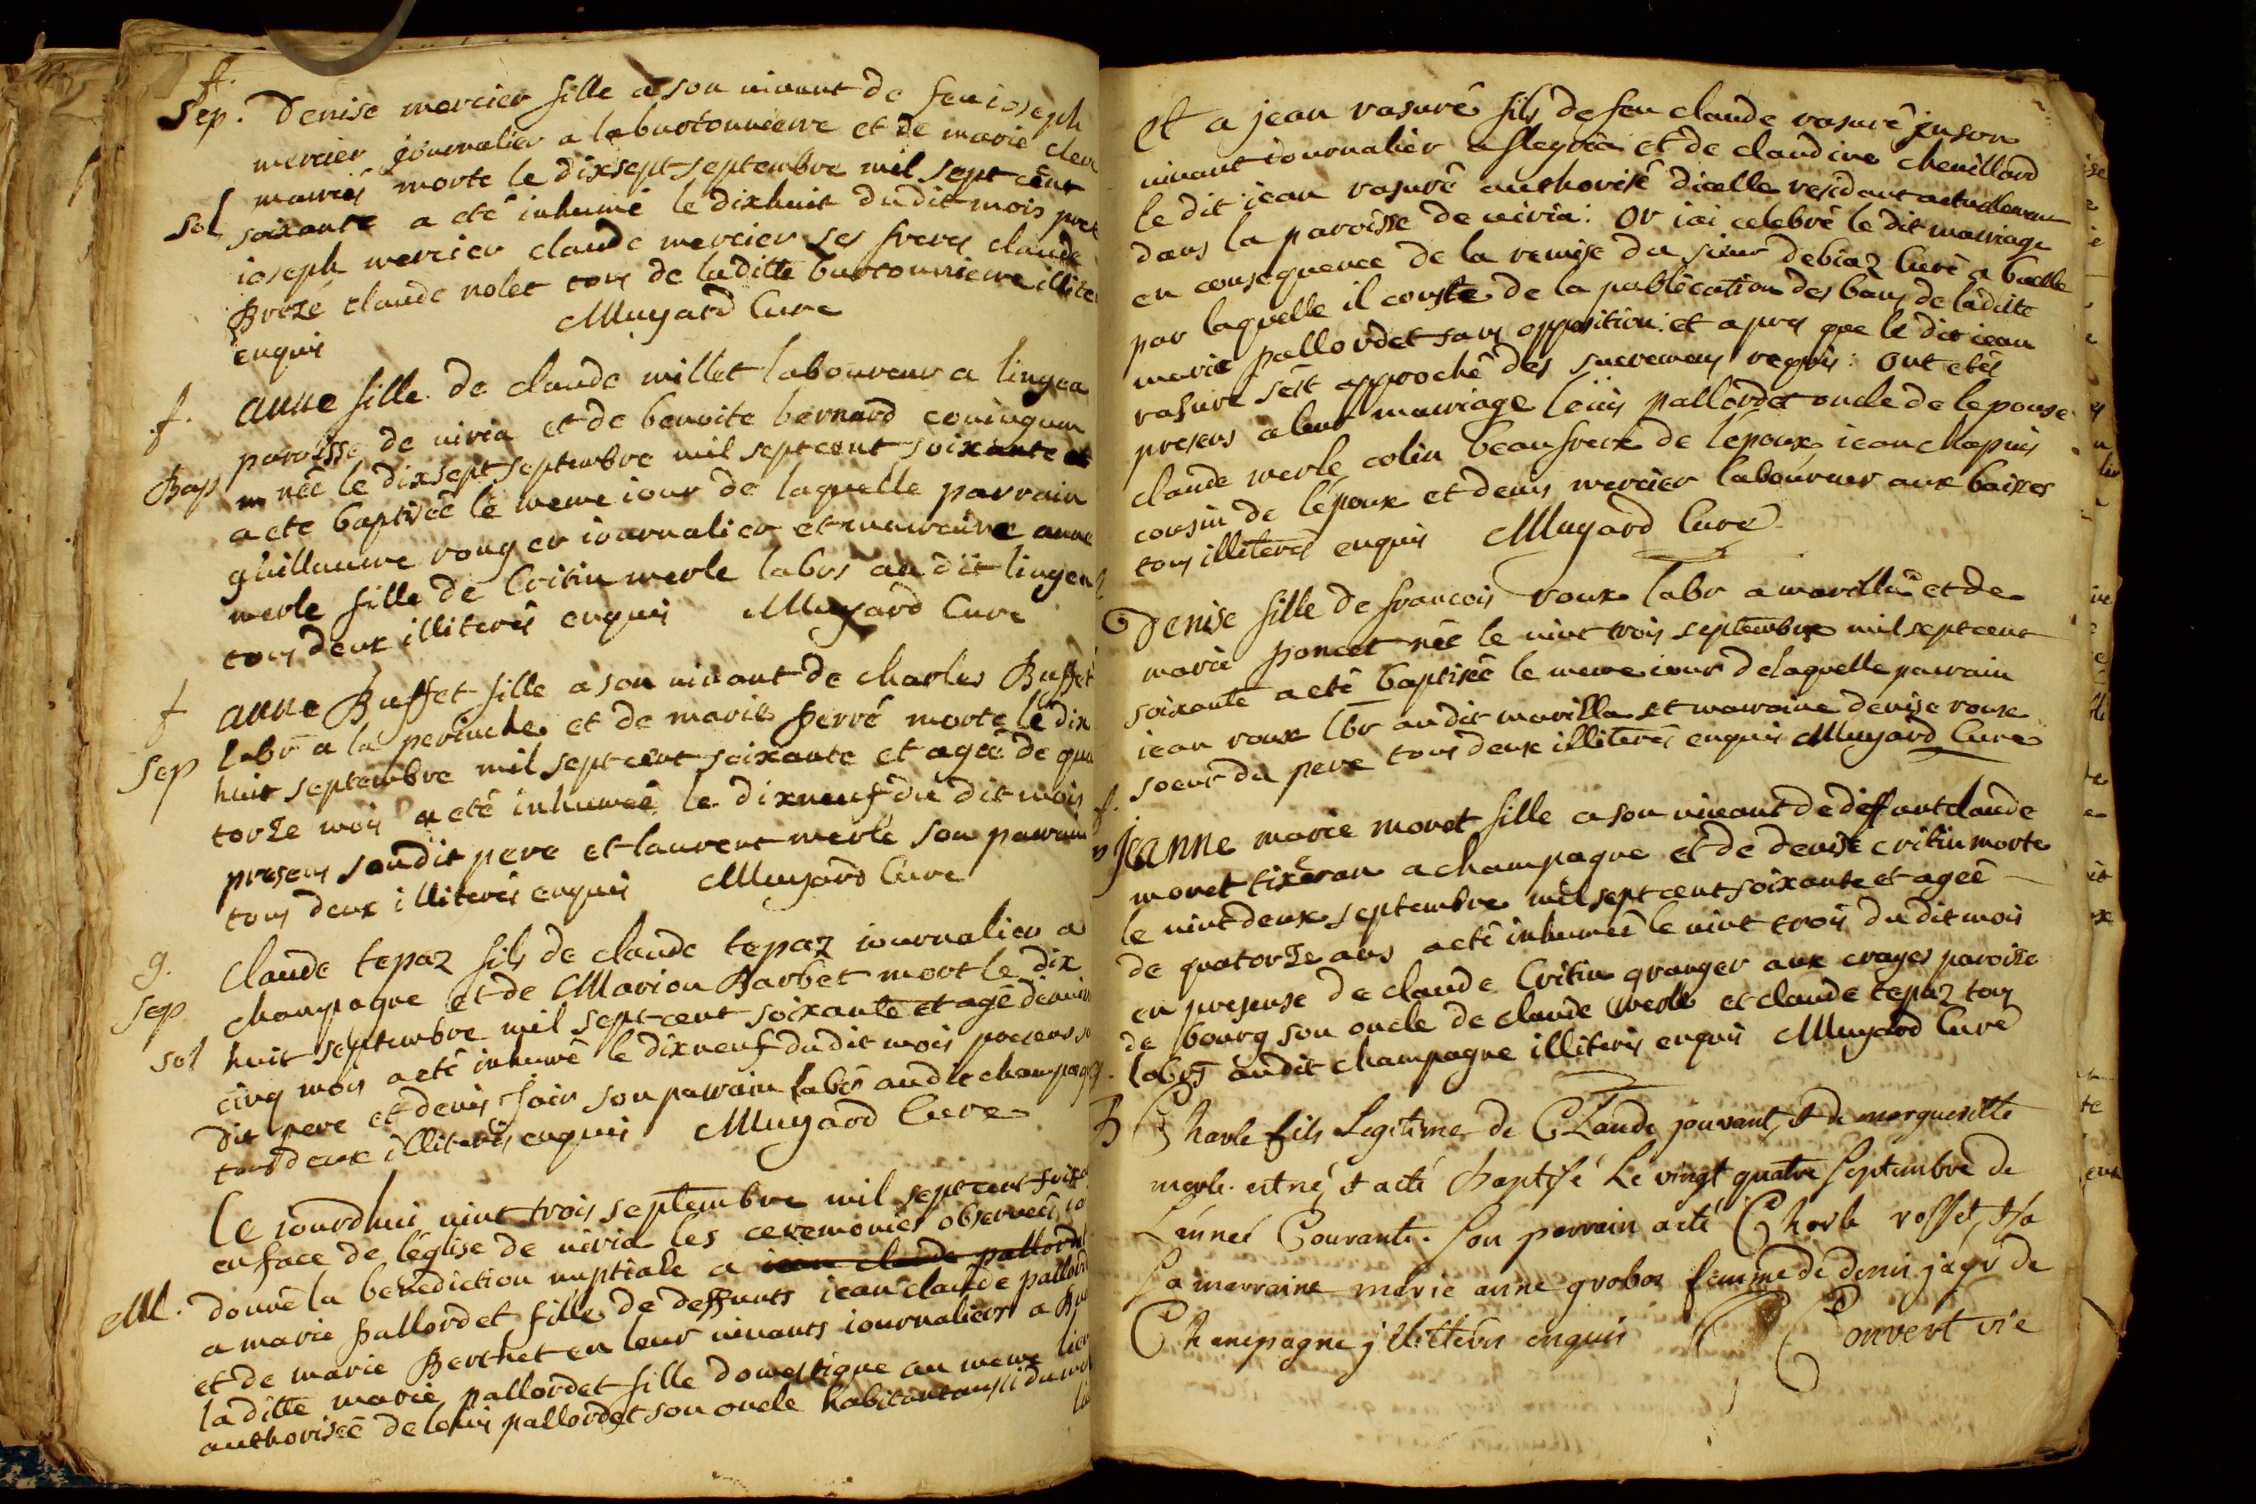 f.
Sep. Denise mercier fille a son vivant de feu ioseph
mercier journalier a la burtonniere et de marie clerc
mariés morte le dixsept septembre mil sept cent
sol soixante a eté inhumé le dixhuit du dit mois pret
ioseph mercier claude mercier ses freres claude
Brozé claude nolet tous de la ditte burtonniere illite
enquis Muyard Curé
f. anne fille de claude millet laboureur a lingea
paroisse de viria et de benoite bernard
Bap née le dixsept septembre mil septcent soixante
a eté baptisée le meme iour de laquelle parrain
guillaume rouger iournalier et marraine anne
merle fille de Critin merle labrs au dit lingea
tous deux illiterés enquis Muyard Curé
f anne Buffet fille a son vivant de charles Buffet
Sep labr a la perinche et de marie perré morte le dix
huit septembre mil septcent soixante et agée de qua
torze mois a eté inhumeé le dixneuf du dit mois
presens son dit pere et laurent merle son parrain
tous deux illiterés enquis Muyard Curé
g. Claude tepaz fils de claude tepaz iournalier a
Sep champagne et de Marion Barbet mort le dix
sol huit septembre mil sept cent soixante et agé denvi
cinq mois a eté inhumé le dixneuf du dit mois presens s
dit pere et denis Join son parrain labrs au dit champag
tous deux illiterés enquis Muyard Curé
Le iourdhui vint trois septembre mil septcent soixa
en face de léglise de viria les ceremonies observeés
M. donné la benediction nuptiale a iean claude pallordet
a marie pallordet fille de deffunts iean claude pallord
et de marie Berthet en leur vivants iournaliers a
la ditte marie pallordet fille domestique au meme lieu
authorisée de loüis pallordet son oncle habitant
Et a jean rasuré fils de feu claude rasuré en son
vivant iournalier a fleyria et de claudine chevillard
le dit iean rasuré authorisé dicelle residant actuellement
dans la paroisse de viria: Or iai celebré le dit mariage
en consequence de la remise du sieur debiaz Curé a buelle
par laquelle il conste de la publication des bans de la ditte
marie pallordet sans opposition: et apres que le dit iean
rasuré sést approché des sacremens requis: Ont etés
presens a leur mariage loüis pallordet oncle de lepouse
claude merle colin beaufrere de lepoux iean chapuis
cousin de lépoux et denis mercier laboureur aux baises
tous illiterés enquis Muyard Curé
Denise fille de francois roux labr a marillia et de
marie poncet née le vint trois septembre mil septcent
soixante a eté baptisée le meme iour de laquelle parrain
iean roux lbr au dit marillia et marraine denise roux
soeur du pere tous deux illiterés enquis Muyard Curé
f.
Jeanne marie moret fille a son vivant de deffunt claude
moret tixeran a champagne et de denise critin morte
le vint deux septembre mil septcent soixante et agée
de quatorze ans a eté inhumée le vint trois du dit mois
en presense de claude Critin granger aux crages paroisse
de bourg son oncle de claude merle et claude tepaz tous
labrs au dit champagne illiterés enquis Muyard Curé
g.
B Charle fils Legitime de CLaude jouvant, & de margueritte
merle. est né, & a eté baptisé Le vingt quatre Septembre de
L'année Courante. Son parrain a eté Charle rosset, & sa
Sa marraine marie anne groboz femme de denis jayr de
Champagne jlliterés enquis Convert vie